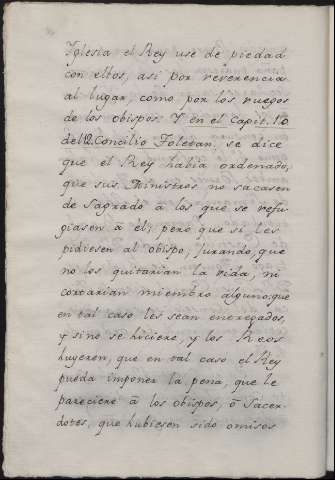 Yglesia el Rey use de piedad
con ellos, asi por reverencia
al lugar, como por los ruegos
de los obispos. Y en el Capit. 10
del 12. Concilio Toletan. se dice
que el Rey habia ordenado,
que sus Ministros no sacasen
de Sagrado à los que se refu-
giasen à èl; pero que si les
pidiesen al obispo, jurando, que
no les quitarian la vida, ni
cortarian miembro alguno; que
en tal caso les sean entregados,
y sino se hiciere, y los Reos
huyeren, que en tal caso el Rey
pueda imponer la pena, que le
pareciere à los obispos, ò Sacer-
dotes, que hubiesen sido omisos